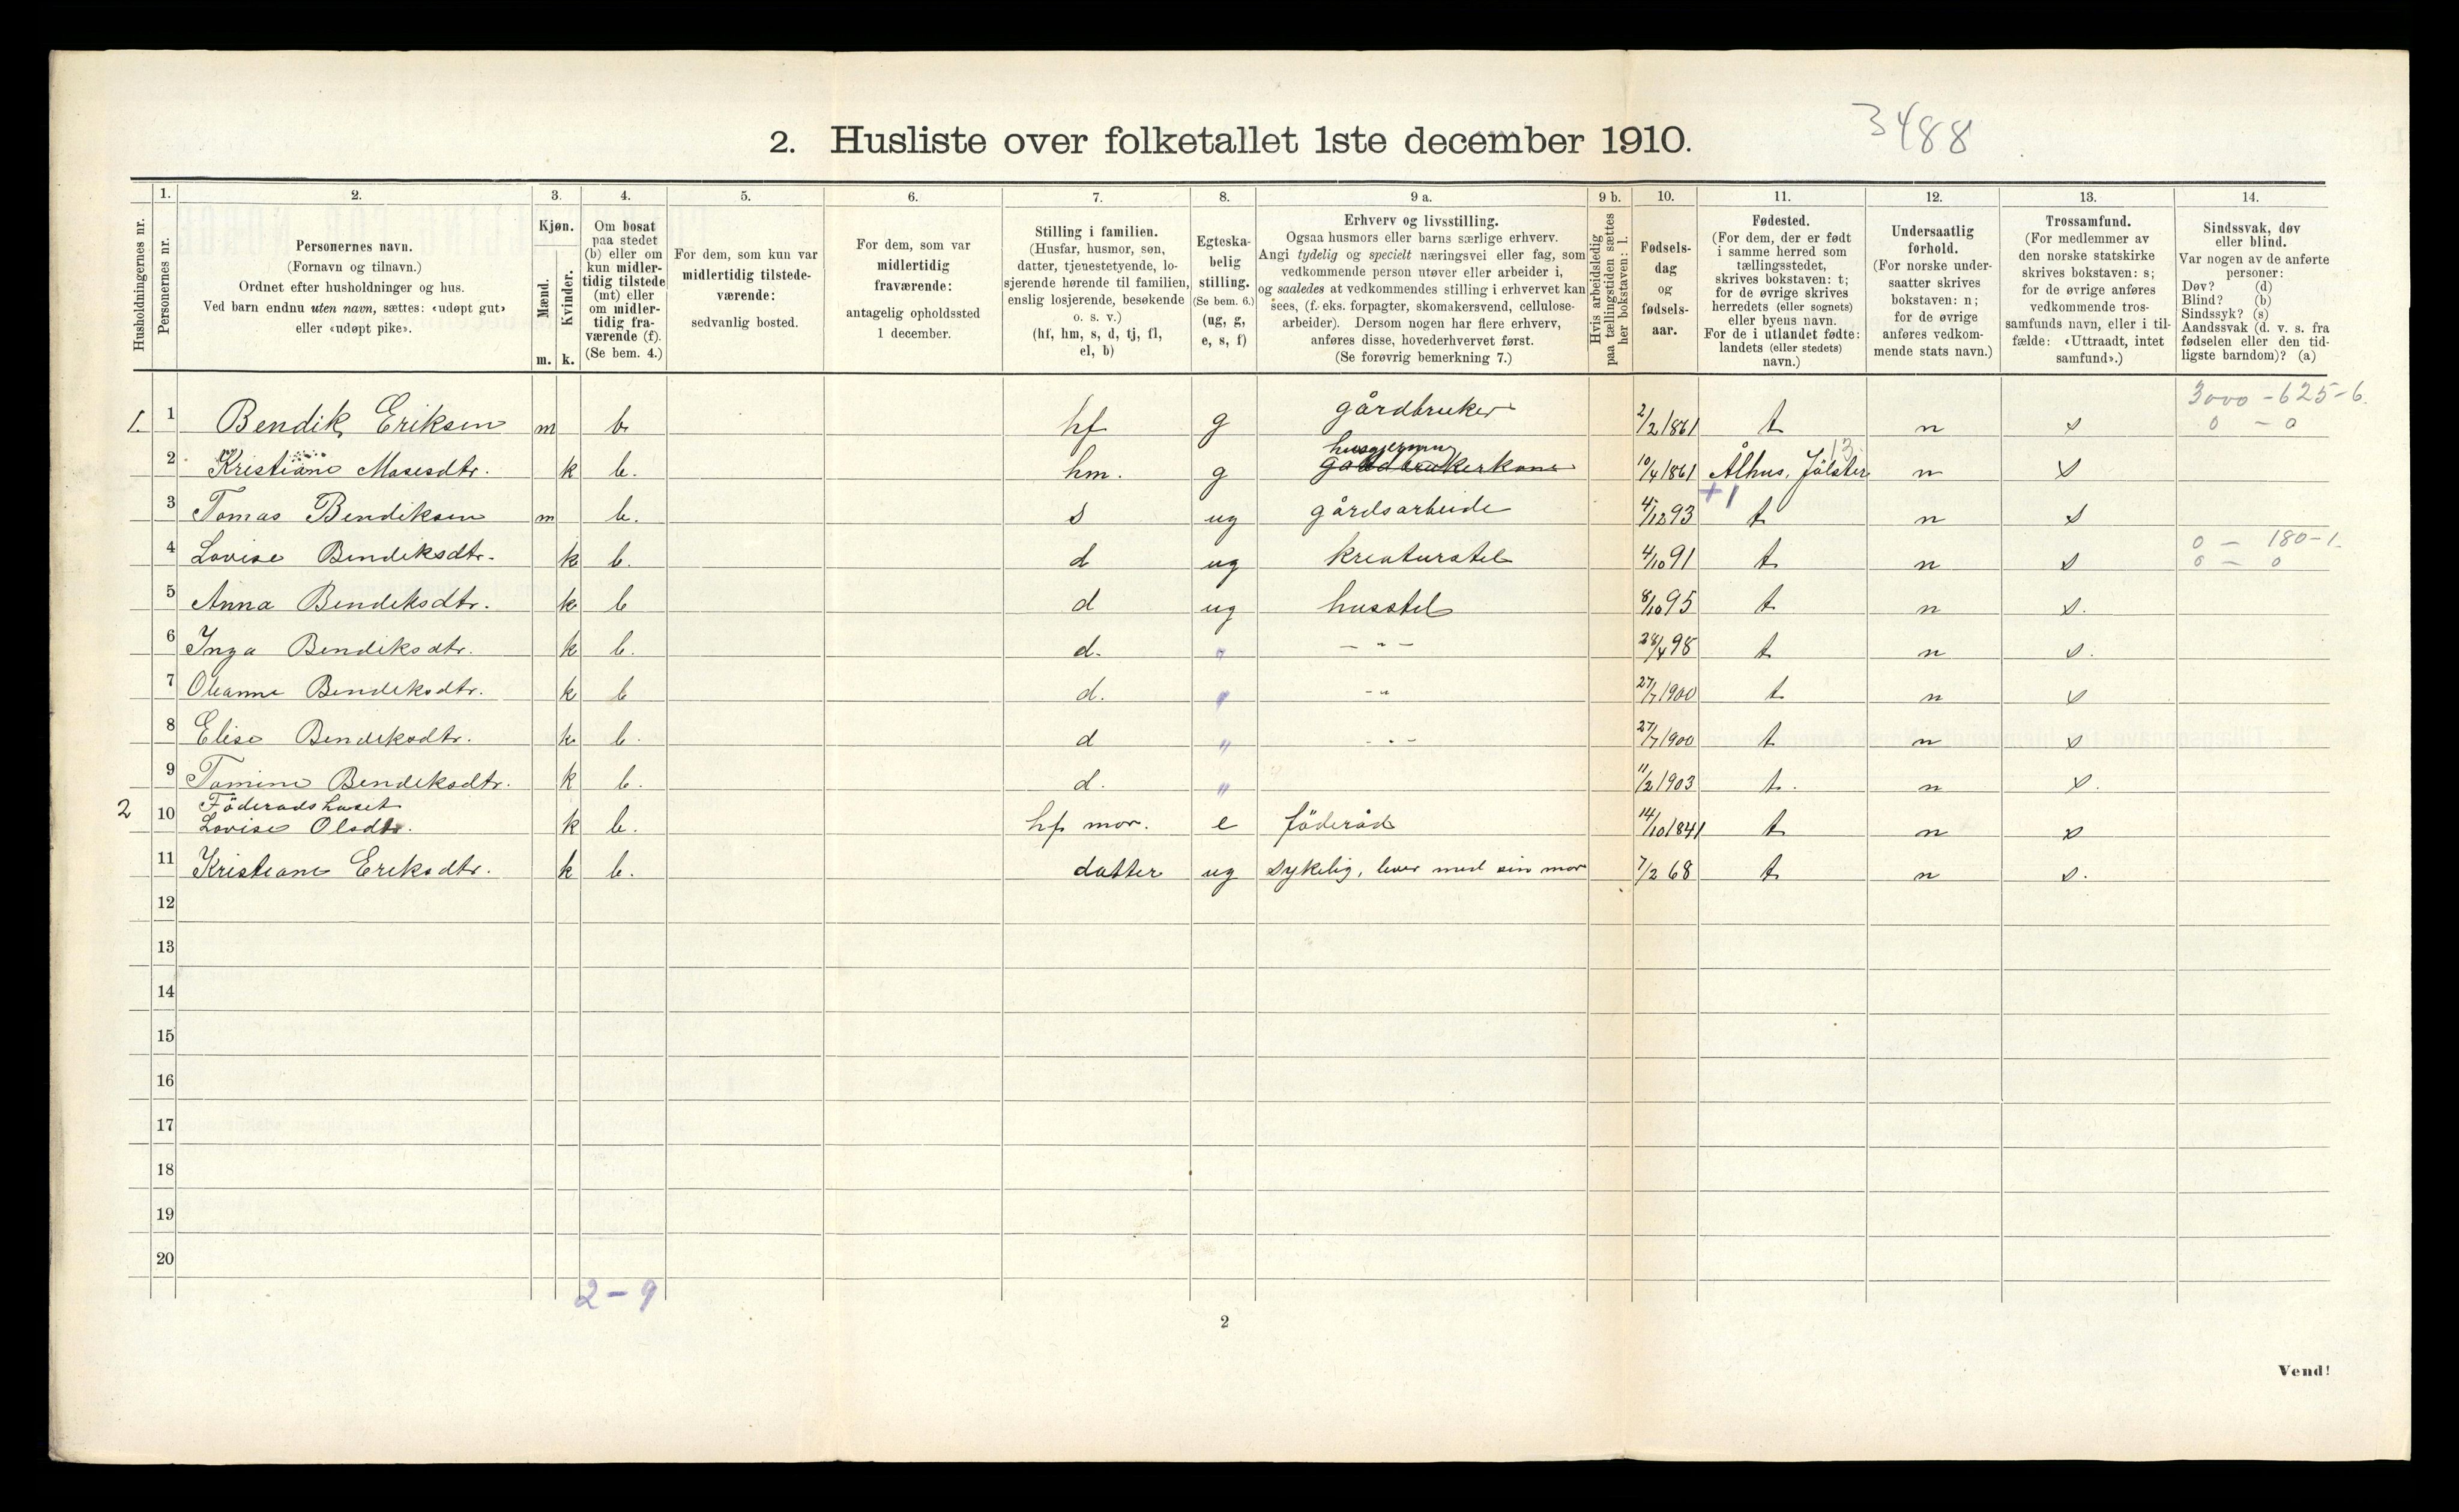 3488
2. Husliste over folketallet 1ste december 1910.
Husholdningernes nr.
1.
Personernes nr.
2.
Personernes navn.
(Fornavn og tilnavn.)
Ordnet efter husholdninger og hus.
Ved barn endnu uten navn, sættes: «udøpt gut»
eller «udøpt pike».
3.
Kjøn.
Mænd.
Kvinder.
m. k.
4.
Om bosat
paa stedet
(b) eller om
kun midler-
tidig tilstede
(mt) eller
om midler-
tidig fra-
værende (f).
(Se bem. 4.)
5.
For dem, som kun var
midlertidig tilstede-
værende:
sedvanlig bosted.
6.
For dem, som var
midlertidig
fraværende:
antagelig opholdssted
1 december.
7.
Stilling i familien.
(Husfar, husmor, søn,
datter, tjenestetyende, lo-
sjerende hørende til familien,
enslig losjerende, besøkende
o. s. v.)
(hf, hm, s, d, tj, fl,
el, b)
8.
Egteska-
belig
stilling.
(Se bem. 6.)
(ug, g,
e, s, f)
9 a.
Erhverv og livsstilling.
Ogsaa husmors eller barns særlige erhverv.
Angi tydelig og specielt næringsvei eller fag, som
vedkommende person utøver eller arbeider i,
og saaledes at vedkommendes stilling i erhvervet kan
sees, (f. eks. forpagter, skomakersvend, cellulose-
arbeider). Dersom nogen har flere erhverv,
anføres disse, hovederhvervet først.
(Se forøvrig bemerkning 7.)
9 b.
Hvis arbeidsledig
paa tællingstiden sættes
her bokstaven: l.
10.
Fødsels-
dag
og
fødsels-
aar.
11.
Fødested.
(For dem, der er født
i samme herred som
tællingsstedet,
skrives bokstaven: t;
for de øvrige skrives
herredets (eller sognets)
eller byens navn.
For de i utlandet fødte:
landets (eller stedets)
navn.)
12.
Undersaatlig
forhold.
(For norske under-
saatter skrives
bokstaven: n;
for de øvrige
anføres vedkom-
mende stats navn.)
13.
Trossamfund.
(For medlemmer av
den norske statskirke
skrives bokstaven: s;
for de øvrige anføres
vedkommende tros-
samfunds navn, eller i til-
fælde: «Uttraadt, intet
samfund».)
14.
Sindssvak, døv
eller blind.
Var nogen av de anførte
personer:
Døv? (d)
Blind? (b)
Sindssyk? (s)
Aandssvak (d. v. s. fra
fødselen eller den tid-
ligste barndom)? (a)
3000 - 625 - 6.
1. 1 Bendik Eriksen m b hf g gårdbruker 2/2 1861 t n s 0 - 0
husgjerning 13
2 Kristiane Mosesdtr. k b. hm. g gårdbrukerkone 10/4 1861 Ålhus, Jölster n s
+1
3 Tomas Bendiksen m b. s ug gårdsarbeide 4/12 93 t n s
0 - 180 - 1.
4 Lovise Bendiksdtr. k b. d ug kreaturstel 4/10 91 t n s 0 - 0
5 Anna Bendiksdtr. k b d ug husstel 8/10 95 t n s.
6 Inga Bendiksdtr. k b. d. " - " - 28/4 98 t n s.
7 Oleanne Bendiksdtr. k b d. " - " 27/7 1900 t n s
8 Elise Bendiksdtr. k b. d " - " - 27/7 1900 t n s
9 Tomine Bendiksdtr. k b. d. " 11/2 1903 t. n s.
Föderådshuset
2 10 Lovise Olsdtr. k b. hf mor. e föderåd 14/10 1841 t n s
11 Kristiane Eriksdtr. k b. datter ug sykelig, lever med sin mor 7/2 68 t n s.
12
13
14
15
16
17
18
19
20
2 - 9
2
Vend!